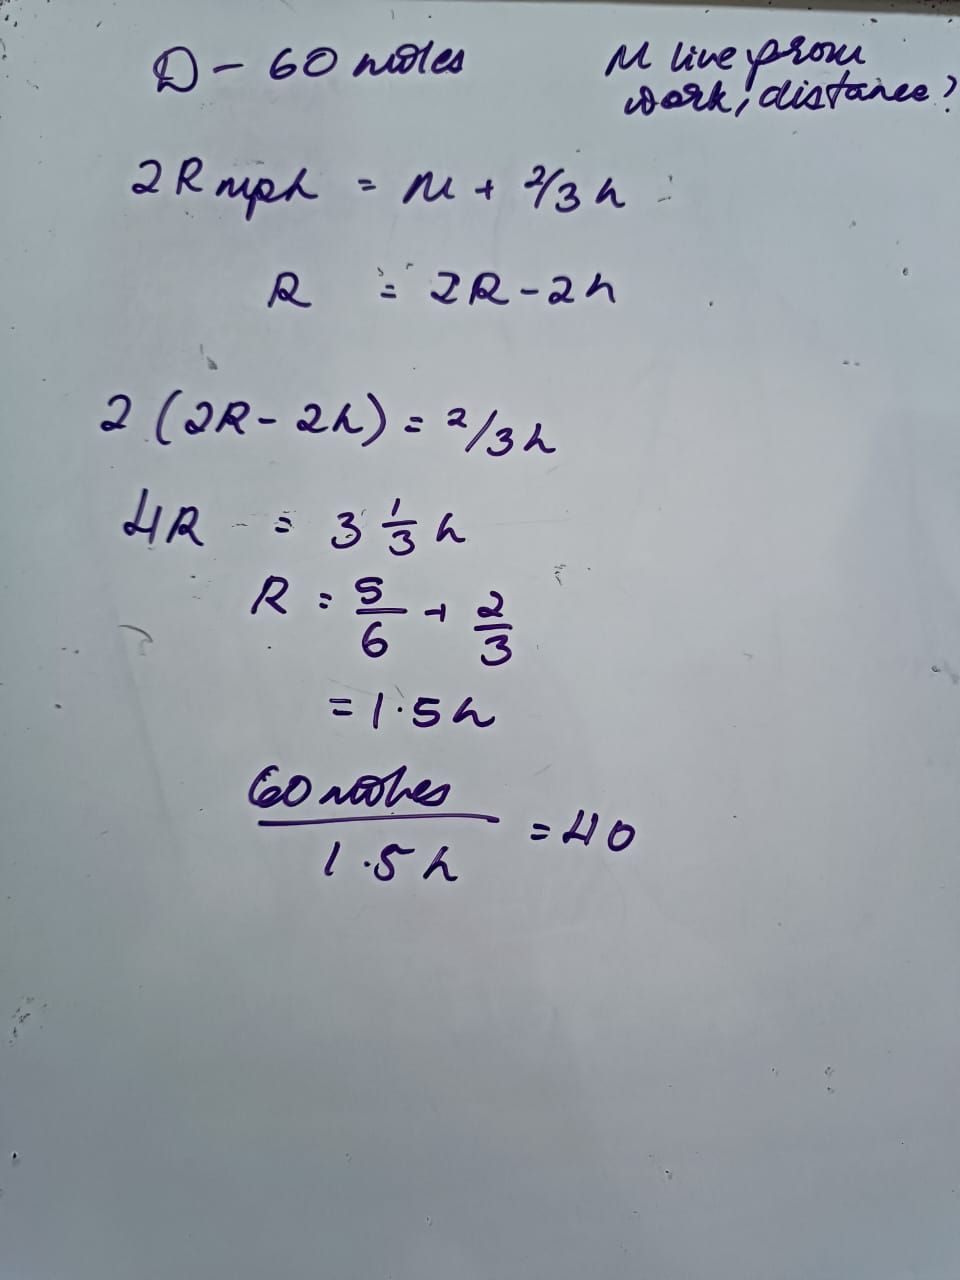 D - 60 miles
M live from
work, distance?
2R mph = M + 2/3 h
R = 2R - 2h
2 (2R - 2h) = 2/3 h
4R = 3 1/3 h
R = 5/6 + 2/3
= 1.5 h
60 miles / 1.5 h = 40